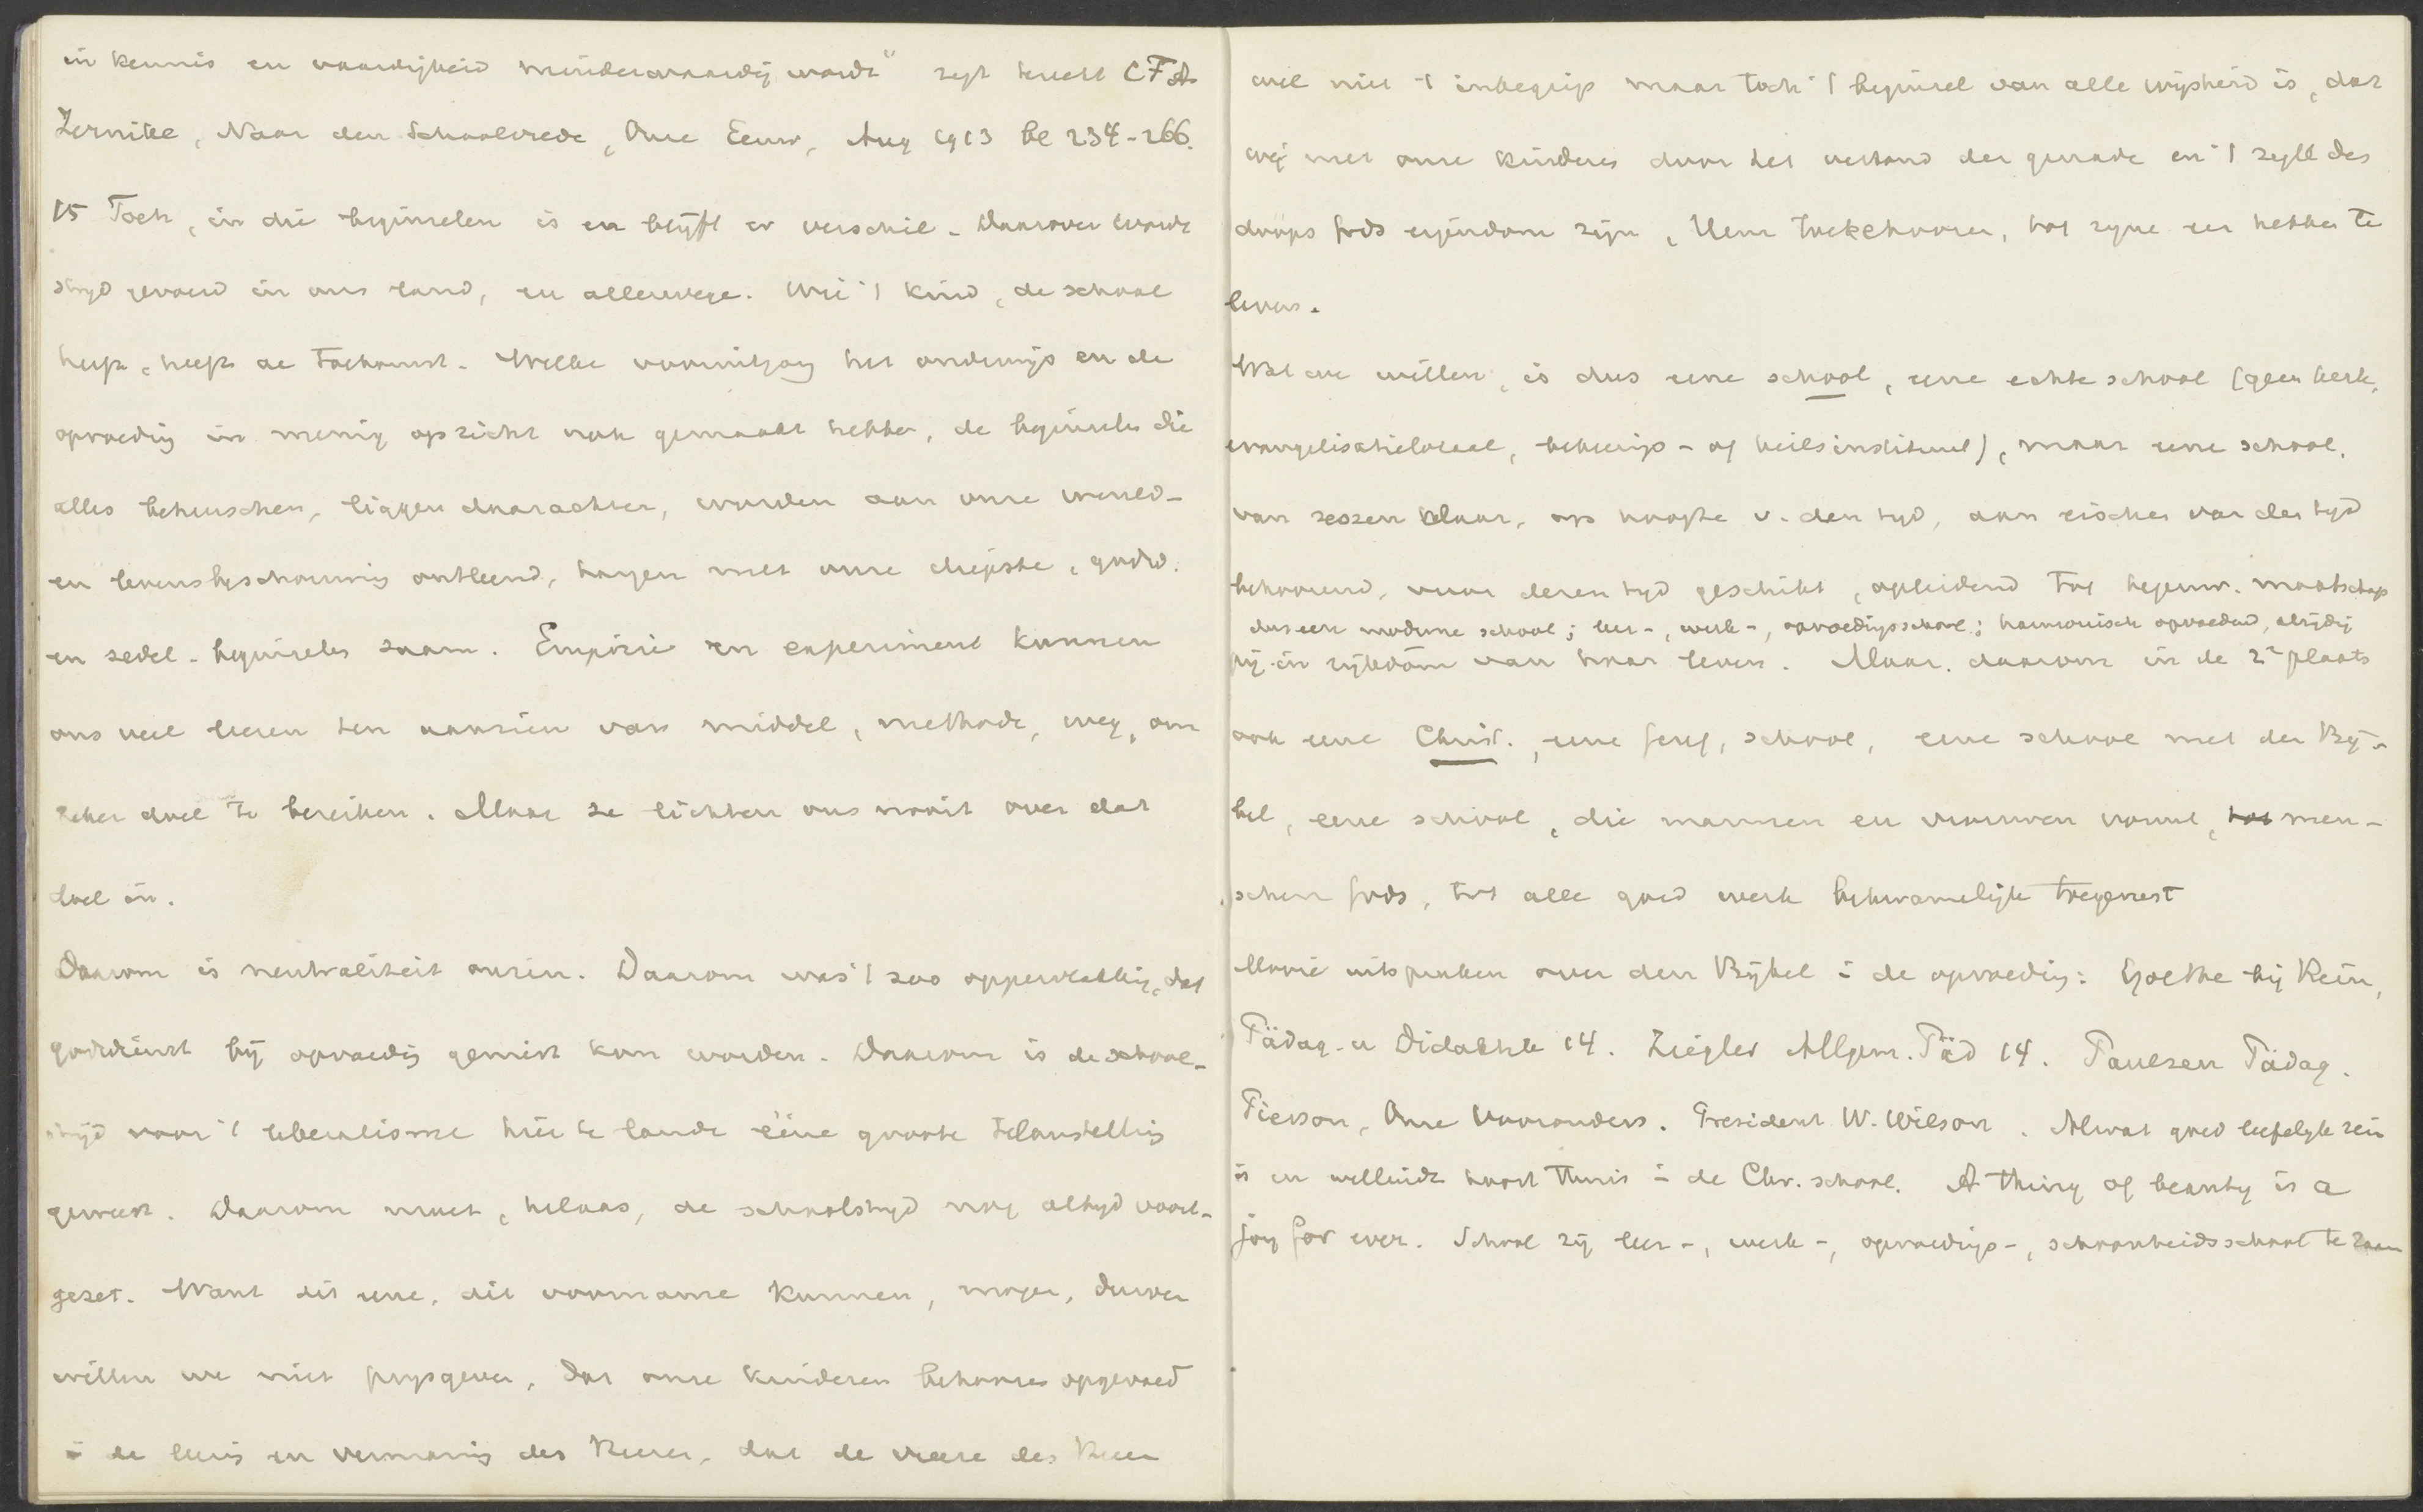 in kennis en vaardigheid minderwaardig wordt" zegt terecht C F A
Zernike, Naar den Schoolvrede, Onze Eeuw, Aug 1913 bl 234-266.
15 Toch, in die beginselen is en blijft er verschil. Daarover wordt
strijd gevoerd in ons land, en allerwege. Wie 't kind, de school
heeft, heeft de toekomst. Welke vooruitgang het onderwijs en de
opvoeding in menig opzicht ook gemaakt hebben, de beginselen die
alles beheerschen, liggen daarachter, worden aan onze wereld-
en levensbeschouwing ontleend, hangen met onze diepste, godsd.
en zedel. beginselen saam. Empirie en experiment kunnen
ons veel leeren ten aanzien van middel, methode, weg, om
zeker doel te bereiken. Maar ze lichten ons nooit over dat
doel in.
Daarom is neutraliteit onzin. Daarom was 't zoo oppervlakkig, dat
godsdienst bij opvoeding gemist kon worden. Daarom is de school-
strijd voor 't liberalisme hier te lande ééne groote teleurstelling
geweest. Daarom moet, helaas, de schoolstrijd nog altijd voort-
gezet. Want dit eene, dit voorname kunnen, mogen, durven
willen we niet prijsgeven, dat onze kinderen behooren opgevoed
i de leering en vermaning des Heeren, dat de vreeze des Heeren
wel niet 't inbegrip maar toch 't beginsel van alle wijsheid is, dat
wij met onze kinderen door het verbond der genade en 't zegel des
doops Gods eigendom zijn, Hem toebehooren, tot zijne eer hebben te
leven.
Wat we willen, is dus eene school, eene echte school (geen kerk,
evangelisatielocaal, bekeerings- of heilsinstituut), maar eene school,
van zessen klaar, op hoogte v. den tijd, aan eischen van den tijd
behoorend, voor deren tijd geschikt, opleidend tot tegenw. maatschap
dus een moderne school; leer-, werk-, opvoedingsschool; harmonisch opvoedend, alzijdig
pij in rijkdom van haar leven. Maar. daarom in de 2e plaats
ook eene Christ., eene Geref, school, eene school met den Bij-
bel, eene school, die mannen en vrouwen vormt, tot men-
schen Gods, tot alle goed werk bekwamelijk toegerust
Mooie uitspraken over den Bijbel i de opvoeding: Goethe bij Rein,
Pädag. u Didaktik 14. Ziegler Allgem. Päd 14. Paulsen Pädag.
Pierson, Onze Voorouders. President W. Wilson. Alwat goed liefelijk rein
is en welluidt hoort thuis i de Chr. school. A thing of beauty is a
joy for ever. School zij leer-, werk-, opvoedings-, schoonheidsschool te zaam